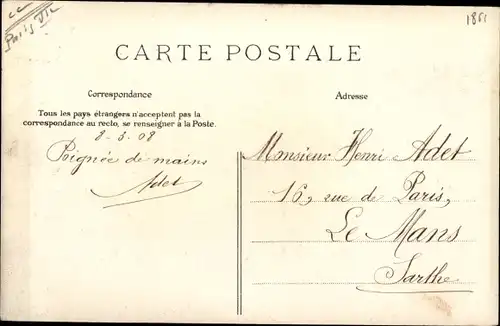 cc
Paris VIe
1861
CARTE POSTALE
Correspondance
Tous les pays étrangers n'acceptent pas la
correspondance au recto, se renseigner à la Poste.
8-5-08
Poignée de mains
Adet
Adresse
Monsieur Henri Adet
16, rue de Paris,
Le Mans
Sarthe